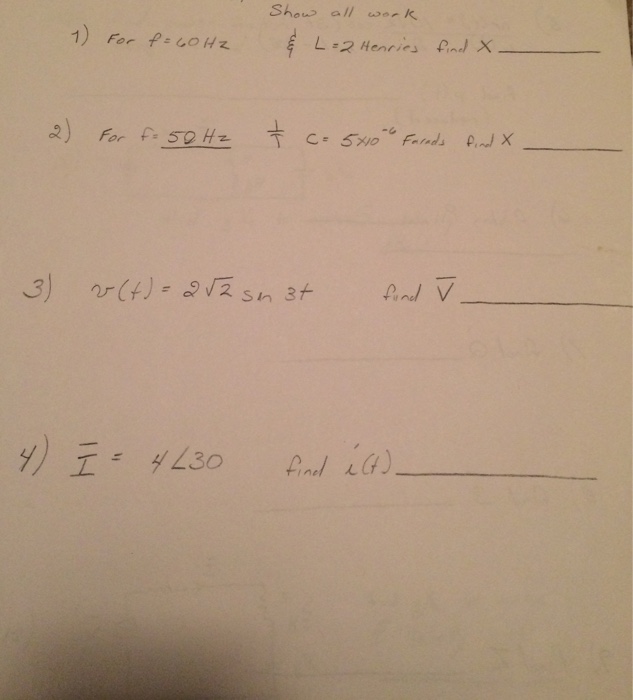 Show all work
1) For f=60Hz & L=2 Henries find X
2) For f=50Hz C=5x10⁻⁶ Farads find X
3) v(t)=2√2 sin 3t find V̅
4) I̅ = 4∠30 find i(t)